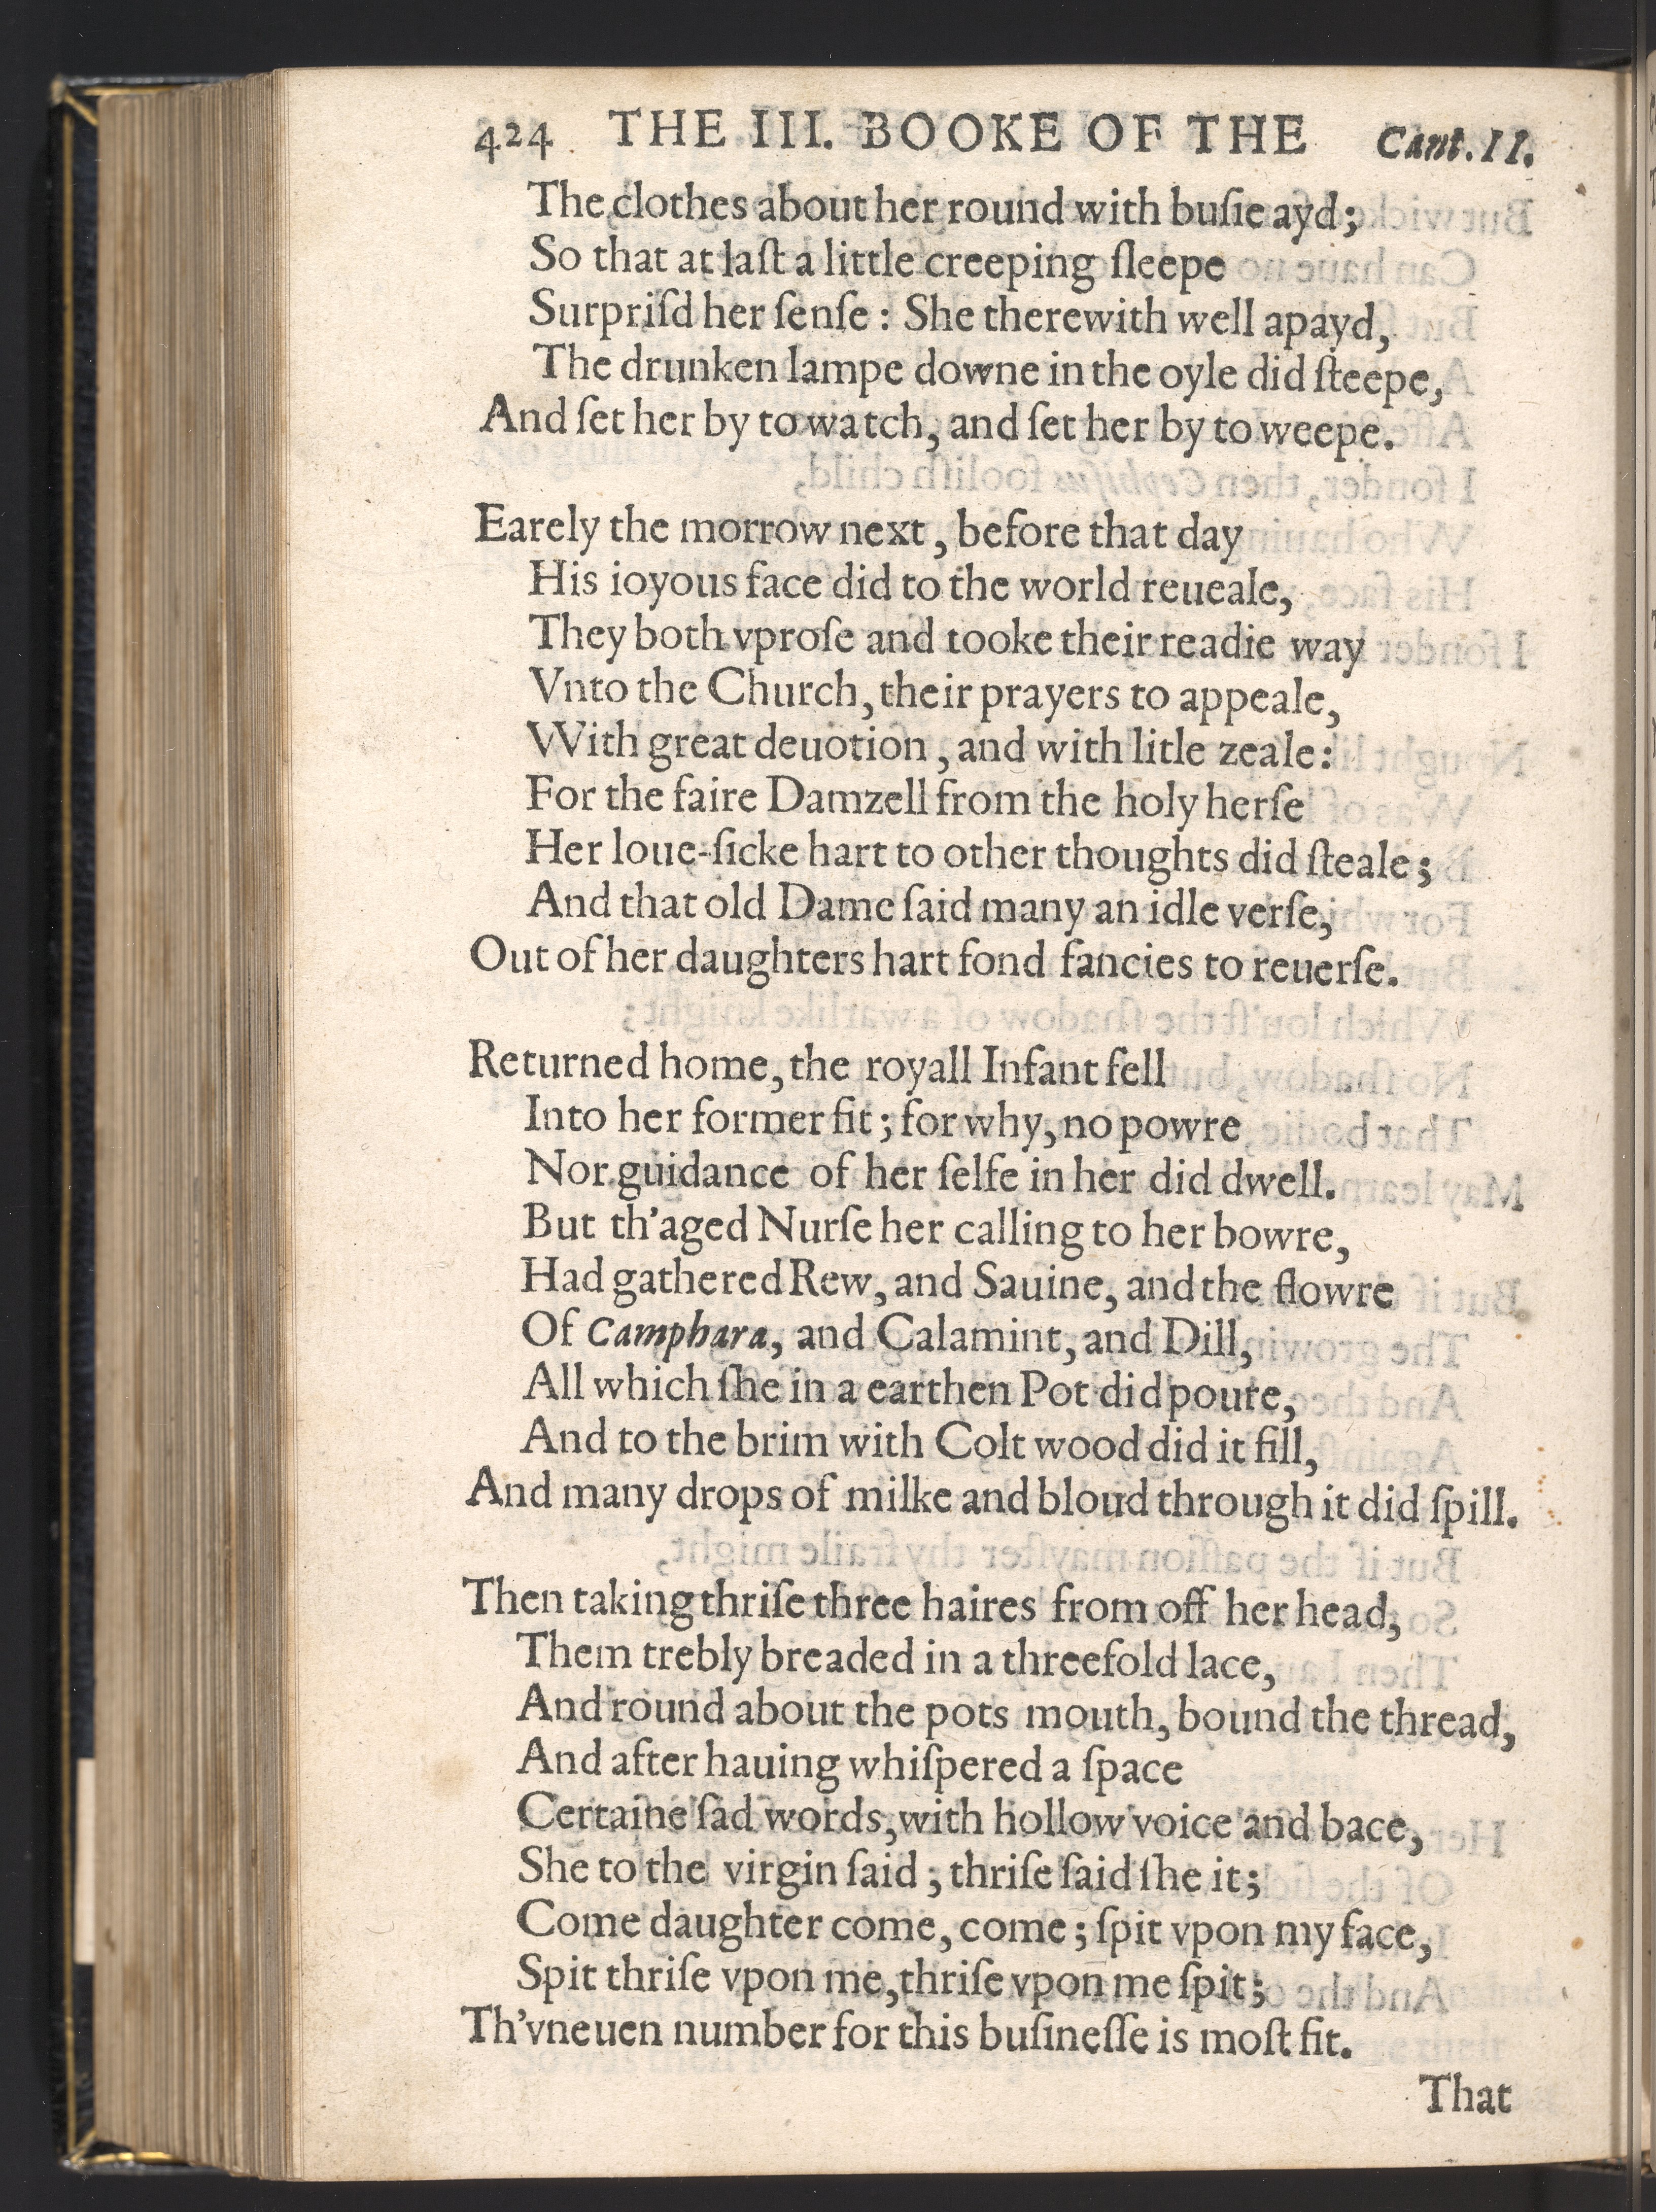 424 THE III. BOOKE OF THE Cant. II.
The clothes about her round with buſie ayd;
So that at laſt a little creeping ſleepe
Surpriſd her ſenſe: She therewith well apayd,
The drunken lampe downe in the oyle did ſteepe,
And ſet her by to watch, and ſet her by to weepe.
Earely the morrow next, before that day
His ioyous face did to the world reueale,
They both vproſe and tooke their readie way
Vnto the Church, their prayers to appeale,
VVith great deuotion, and with litle zeale:
For the faire Damzell from the holy herſe
Her loue-ſicke hart to other thoughts did ſteale;
And that old Dame ſaid many an idle verſe,
Out of her daughters hart fond fancies to reuerſe.
Returned home, the royall Infant fell
Into her former fit; for why, no powre
Nor guidance of her ſelfe in her did dwell.
But th'aged Nurſe her calling to her bowre,
Had gathered Rew, and Sauine, and the flowre
Of Camphara, and Calamint, and Dill,
All which ſhe in a earthen Pot did poure,
And to the brim with Colt wood did it fill,
And many drops of milke and bloud through it did ſpill.
Then taking thriſe three haires from off her head,
Them trebly breaded in a threefold lace,
And round about the pots mouth, bound the thread,
And after hauing whiſpered a ſpace
Certaine ſad words, with hollow voice and bace,
She to the virgin ſaid; thriſe ſaid ſhe it;
Come daughter come, come; ſpit vpon my face,
Spit thriſe vpon me, thriſe vpon me ſpit;
Th'vneuen number for this buſineſſe is moſt fit.
That